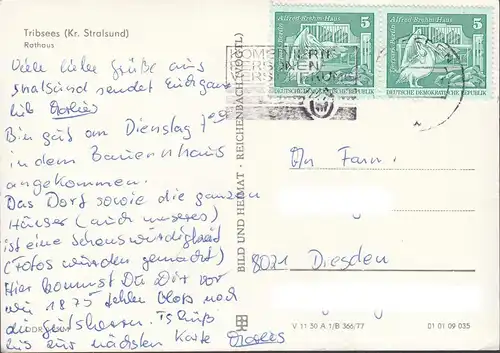 Tribsees (Kr. Stralsund)
Rathaus
Viele liebe Grüße aus
Stralsund sendet Euch ganz
lieb
Bin gut am Dienstag 7
in dem Bauernhaus
angekommen.
Das Dorf sowie die ganzen
Häuser (auch unseres)
ist eine Sehenswürdigkeit
(Fotos werden gemacht)
Hier kommst Du Dir vor
wie 1875 fehlen bloß noch
die Gutsherren. Tschüß
bis zur nächsten Karte
BILD UND HEIMAT · REICHENBACH (VOGTL)
Alfred-Brehm-Haus
5
DEUTSCHE DEMOKRATISCHE REPUBLIK
Alfred-Brehm-Haus
5
DEUTSCHE DEMOKRATISCHE REPUBLIK
An Fam.
8021 Dresden
V 11 30 A 1/B 366/77
01 01 09 035